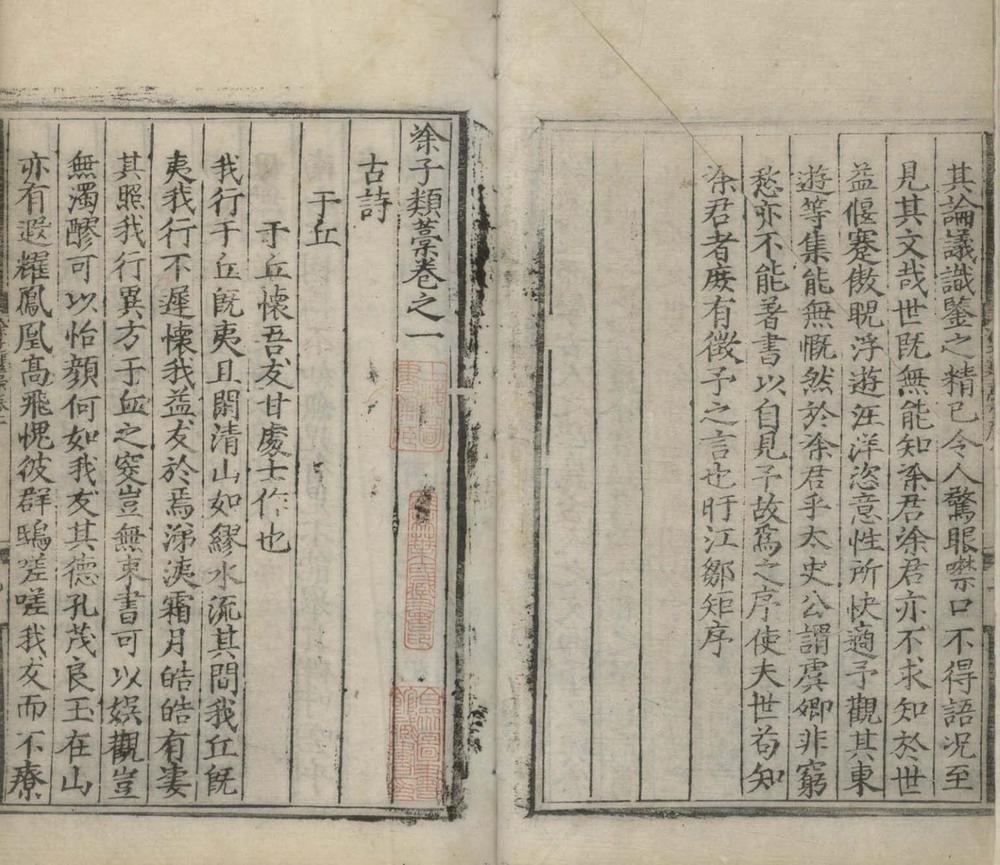 其論議識鑒之精已令人驚眼噤口不得語况至
見其文哉世既無能知凃君凃君亦不求知於世
益偃蹇傲睨浮遊汪洋恣意性所快適予觀其東
遊等集能無慨然於凃君乎太史公謂虞卿非窮
愁亦不能著書以自見予故爲之序使夫世苟知
凃君者庻有徵予之言也盱江鄒矩序
凃子類藁卷之一
古詩
于丘
于丘懷吾友甘處士作也
我行于丘旣夷且閑清山如繆水流其間我丘旣
夷我行不遲懷我益友於焉涕洟霜月皓皓有凄
其照我行異方于丘之突豈無東書可以娯觀豈
無濁醪可以怡顔何如我友其德孔茂良玉在山
亦有遐耀鳳凰髙飛愧彼群鴟嗟嗟我友而不療